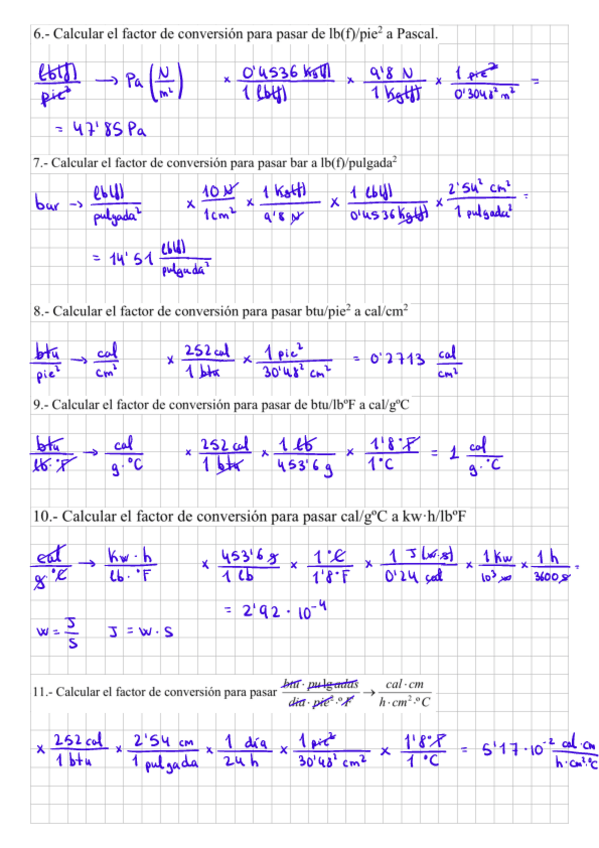 6.- Calcular el factor de conversión para pasar de lb(f)/pie² a Pascal.
lb(f)/pie² → Pa (N/m²) × 0'4536 kg(f)/1 lb(f) × 9'8 N/1 kg(f) × 1 pie²/0'3048² m² =
= 47'85 Pa
7.- Calcular el factor de conversión para pasar bar a lb(f)/pulgada²
bar → lb(f)/pulgada² × 10 N/1 cm² × 1 kg(f)/9'8 N × 1 lb(f)/0'4536 kg(f) × 2'54² cm²/1 pulgada² =
= 14'51 lb(f)/pulgada²
8.- Calcular el factor de conversión para pasar btu/pie² a cal/cm²
btu/pie² → cal/cm² × 252 cal/1 btu × 1 pie²/30'48² cm² = 0'2713 cal/cm²
9.- Calcular el factor de conversión para pasar de btu/lbºF a cal/gºC
btu/lb·ºF → cal/g·ºC × 252 cal/1 btu × 1 lb/453'6 g × 1'8 ºF/1ºC = 1 cal/g·ºC
10.- Calcular el factor de conversión para pasar cal/gºC a kw·h/lbºF
cal/g ºC → Kw·h/lb·ºF × 453'6 g/1 lb × 1 ºC/1'8 ºF × 1 J (w·s)/0'24 cal × 1 Kw/10³ w × 1 h/3600 s =
= 2'92 · 10⁻⁴
W = J/S J = W · S
11.- Calcular el factor de conversión para pasar btu · pulgadas/dia · pie² · ºF → cal · cm/h · cm² · ºC
× 252 cal/1 btu × 2'54 cm/1 pulgada × 1 día/24 h × 1 pie²/30'48² cm² × 1'8 ºF/1 ºC = 5'17 · 10⁻² cal·cm/h·cm²·ºC